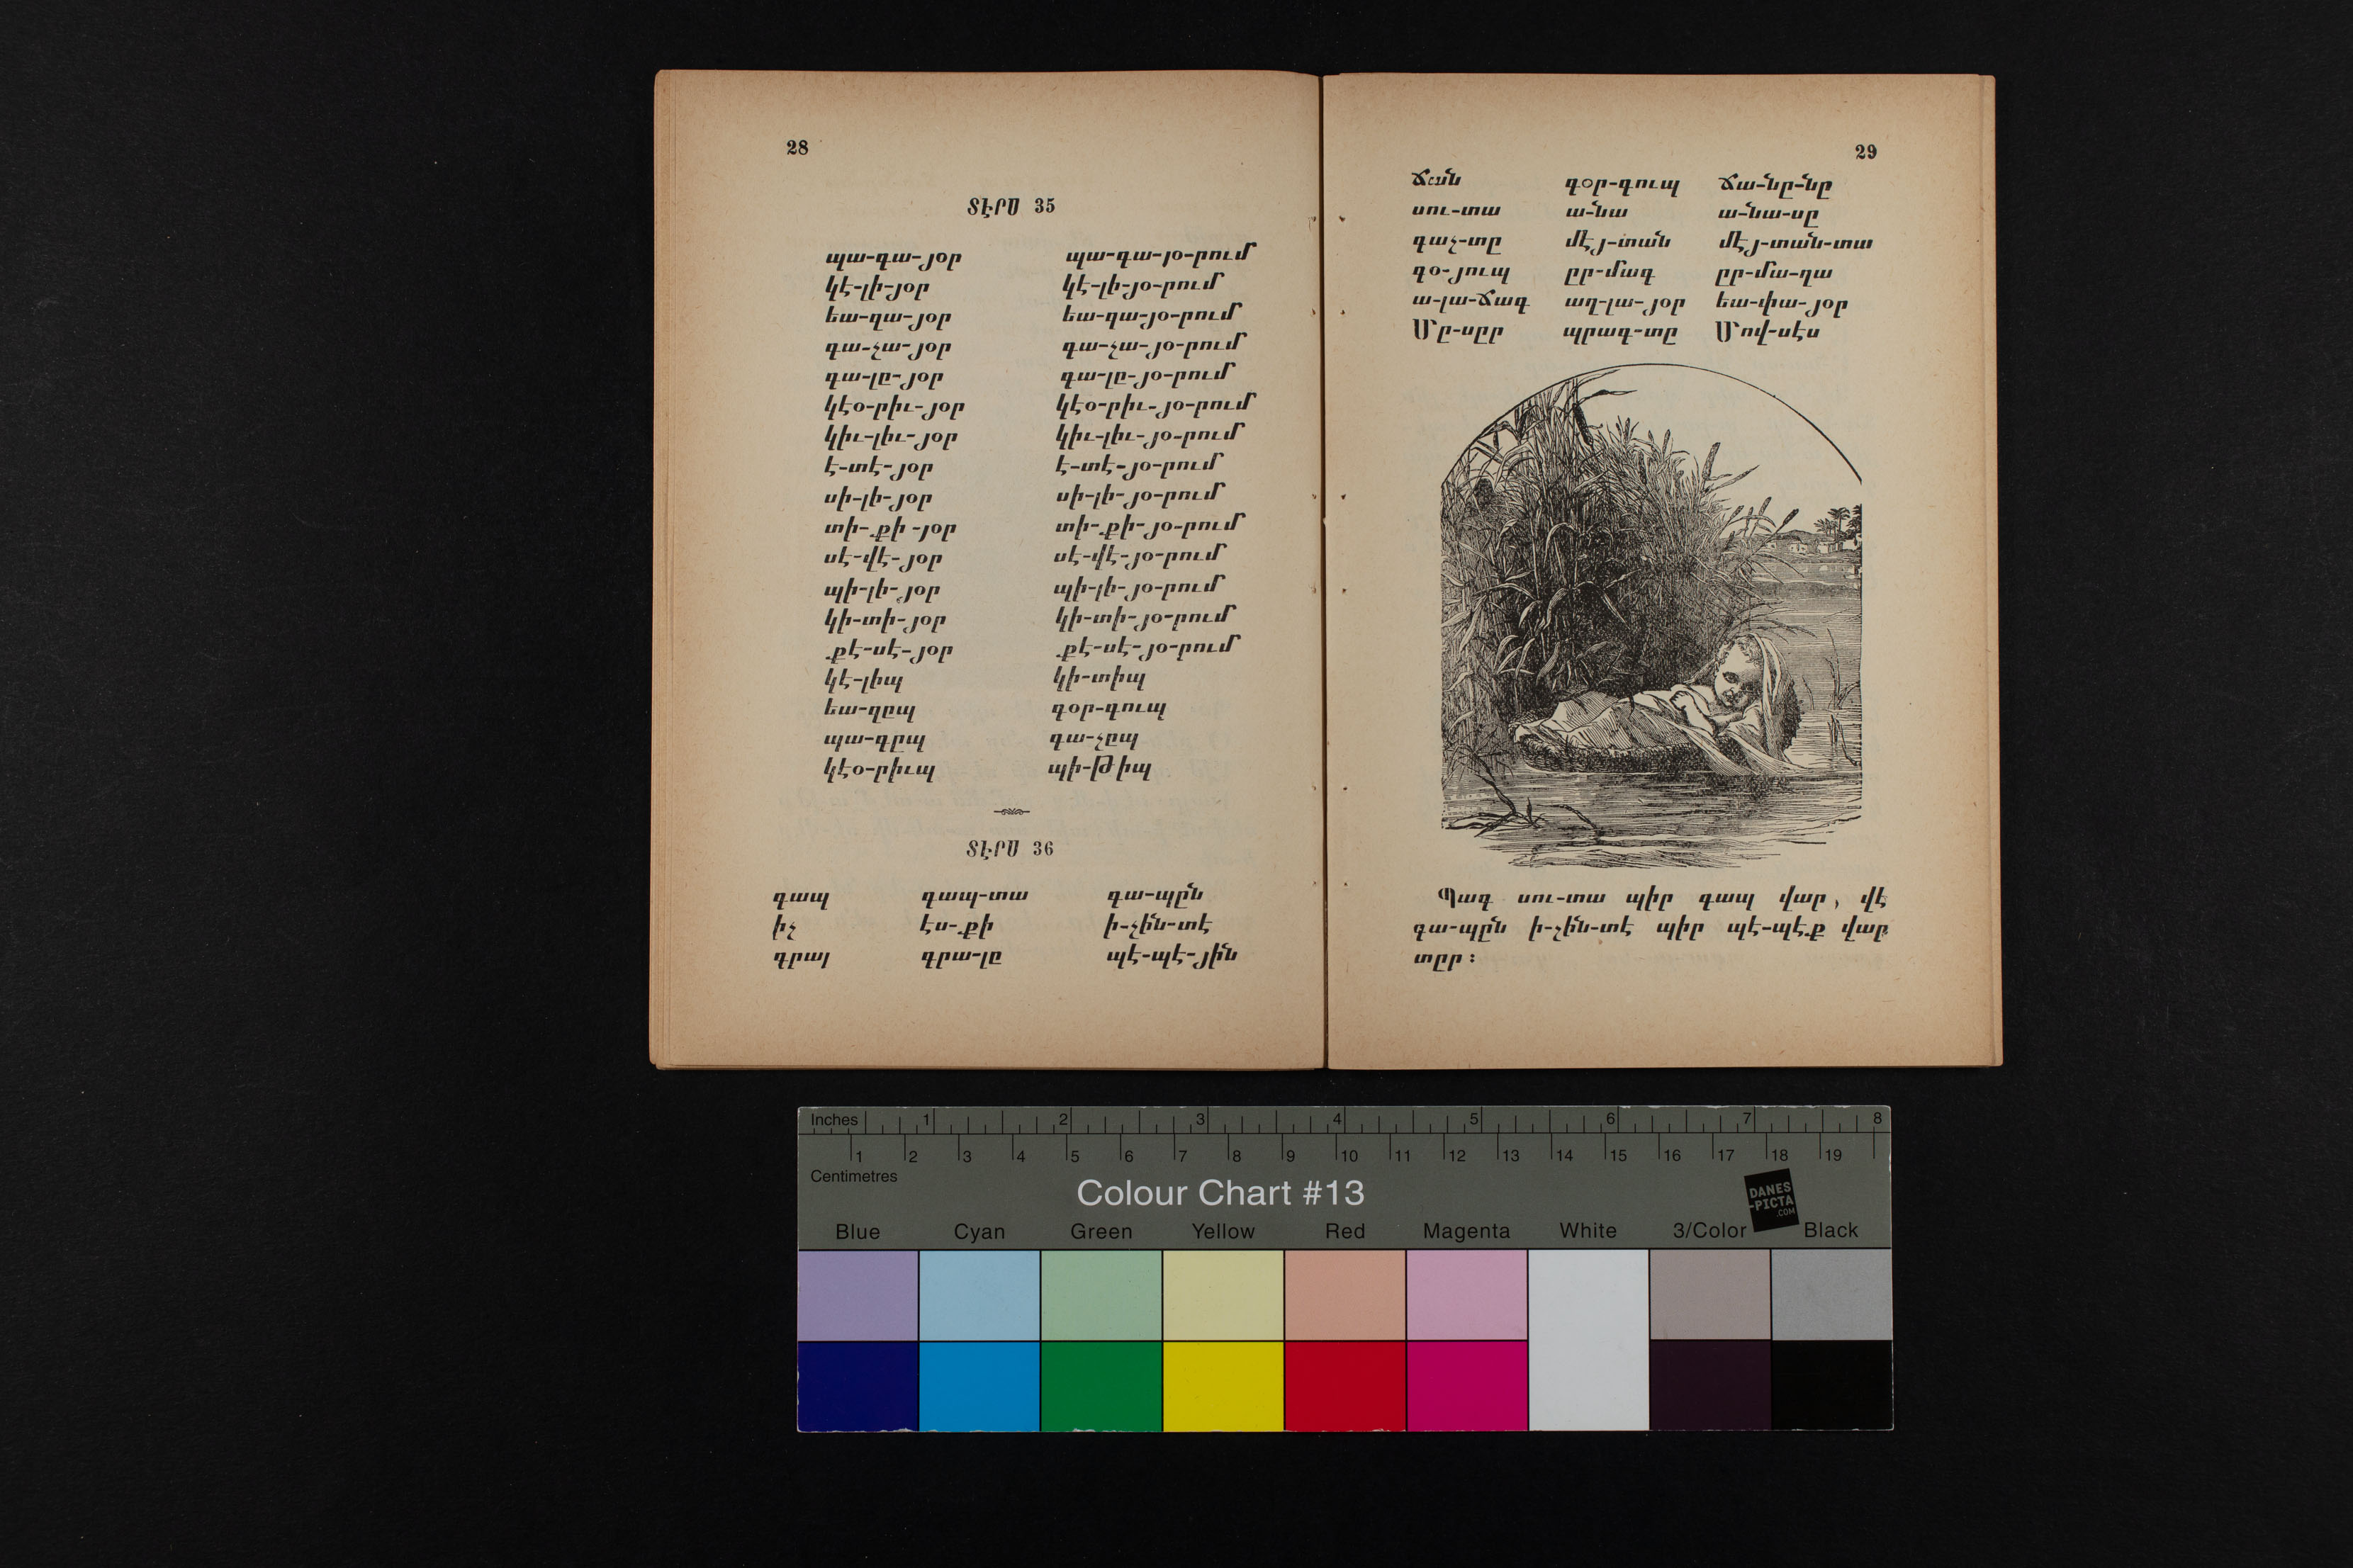 28
ՏԷՐՍ 35
պա-գա-յօր պա-գա-յօ-րում
կէ-լի-յօր կէ-լի-յօ-րում
եա-ղա-յօր եա-ղա-յօ-րում
գա-չա-յօր գա-չա-յօ-րում
գա-լը-յօր գա-լը-յօ-րում
կէօ-րիւ-յօր կէօ-րիւ-յօ-րում
կիւ-լիւ-յօր կիւ-լիւ-յօ-րում
է-տէ-յօր է-տէ-յօ-րում
սի-լի-յօր սի-լի-յօ-րում
տի-քի-յօր տի-քի-յօ-րում
սէ-վէ-յօր սէ-վէ-յօ-րում
պի-լի-յօր պի-լի-յօ-րում
կի-տի-յօր կի-տի-յօ-րում
քէ-սէ-յօր քէ-սէ-յօ-րում
կէ-լիպ կի-տիպ
եա-ղըպ գօր-գուպ
պա-գըպ գա-չըպ
կէօ-րիւպ պի-թիպ
ՏԷՐՍ 36
գապ գապ-տա գա-պըն
իչ էս-քի ի-չին-տէ
գրալ գրա-լը պէ-պէ-յին
29
ճան գօր-գուպ ճա-նը-նը
սու-տա ա-նա ա-նա-սը
գաչ-տը մէյ-տան մէյ-տան-տա
գօ-յուպ ըր-մագ ըր-մա-ղա
ա-լա-ճագ աղ-լա-յօր եա-փա-յօր
Մը-սըր պրագ-տը Մով-սէս
Պագ սու-տա պիր գապ վար, վէ
գա-պըն ի-չին-տէ պիր պէ-պէք վար
տըր ։
Inches 1 2 3 4 5 6 7 8
1 2 3 4 5 6 7 8 9 10 11 12 13 14 15 16 17 18 19
Centimetres
Colour Chart #13
DANES
-PICTA
.COM
Blue Cyan Green Yellow Red Magenta White 3/Color Black